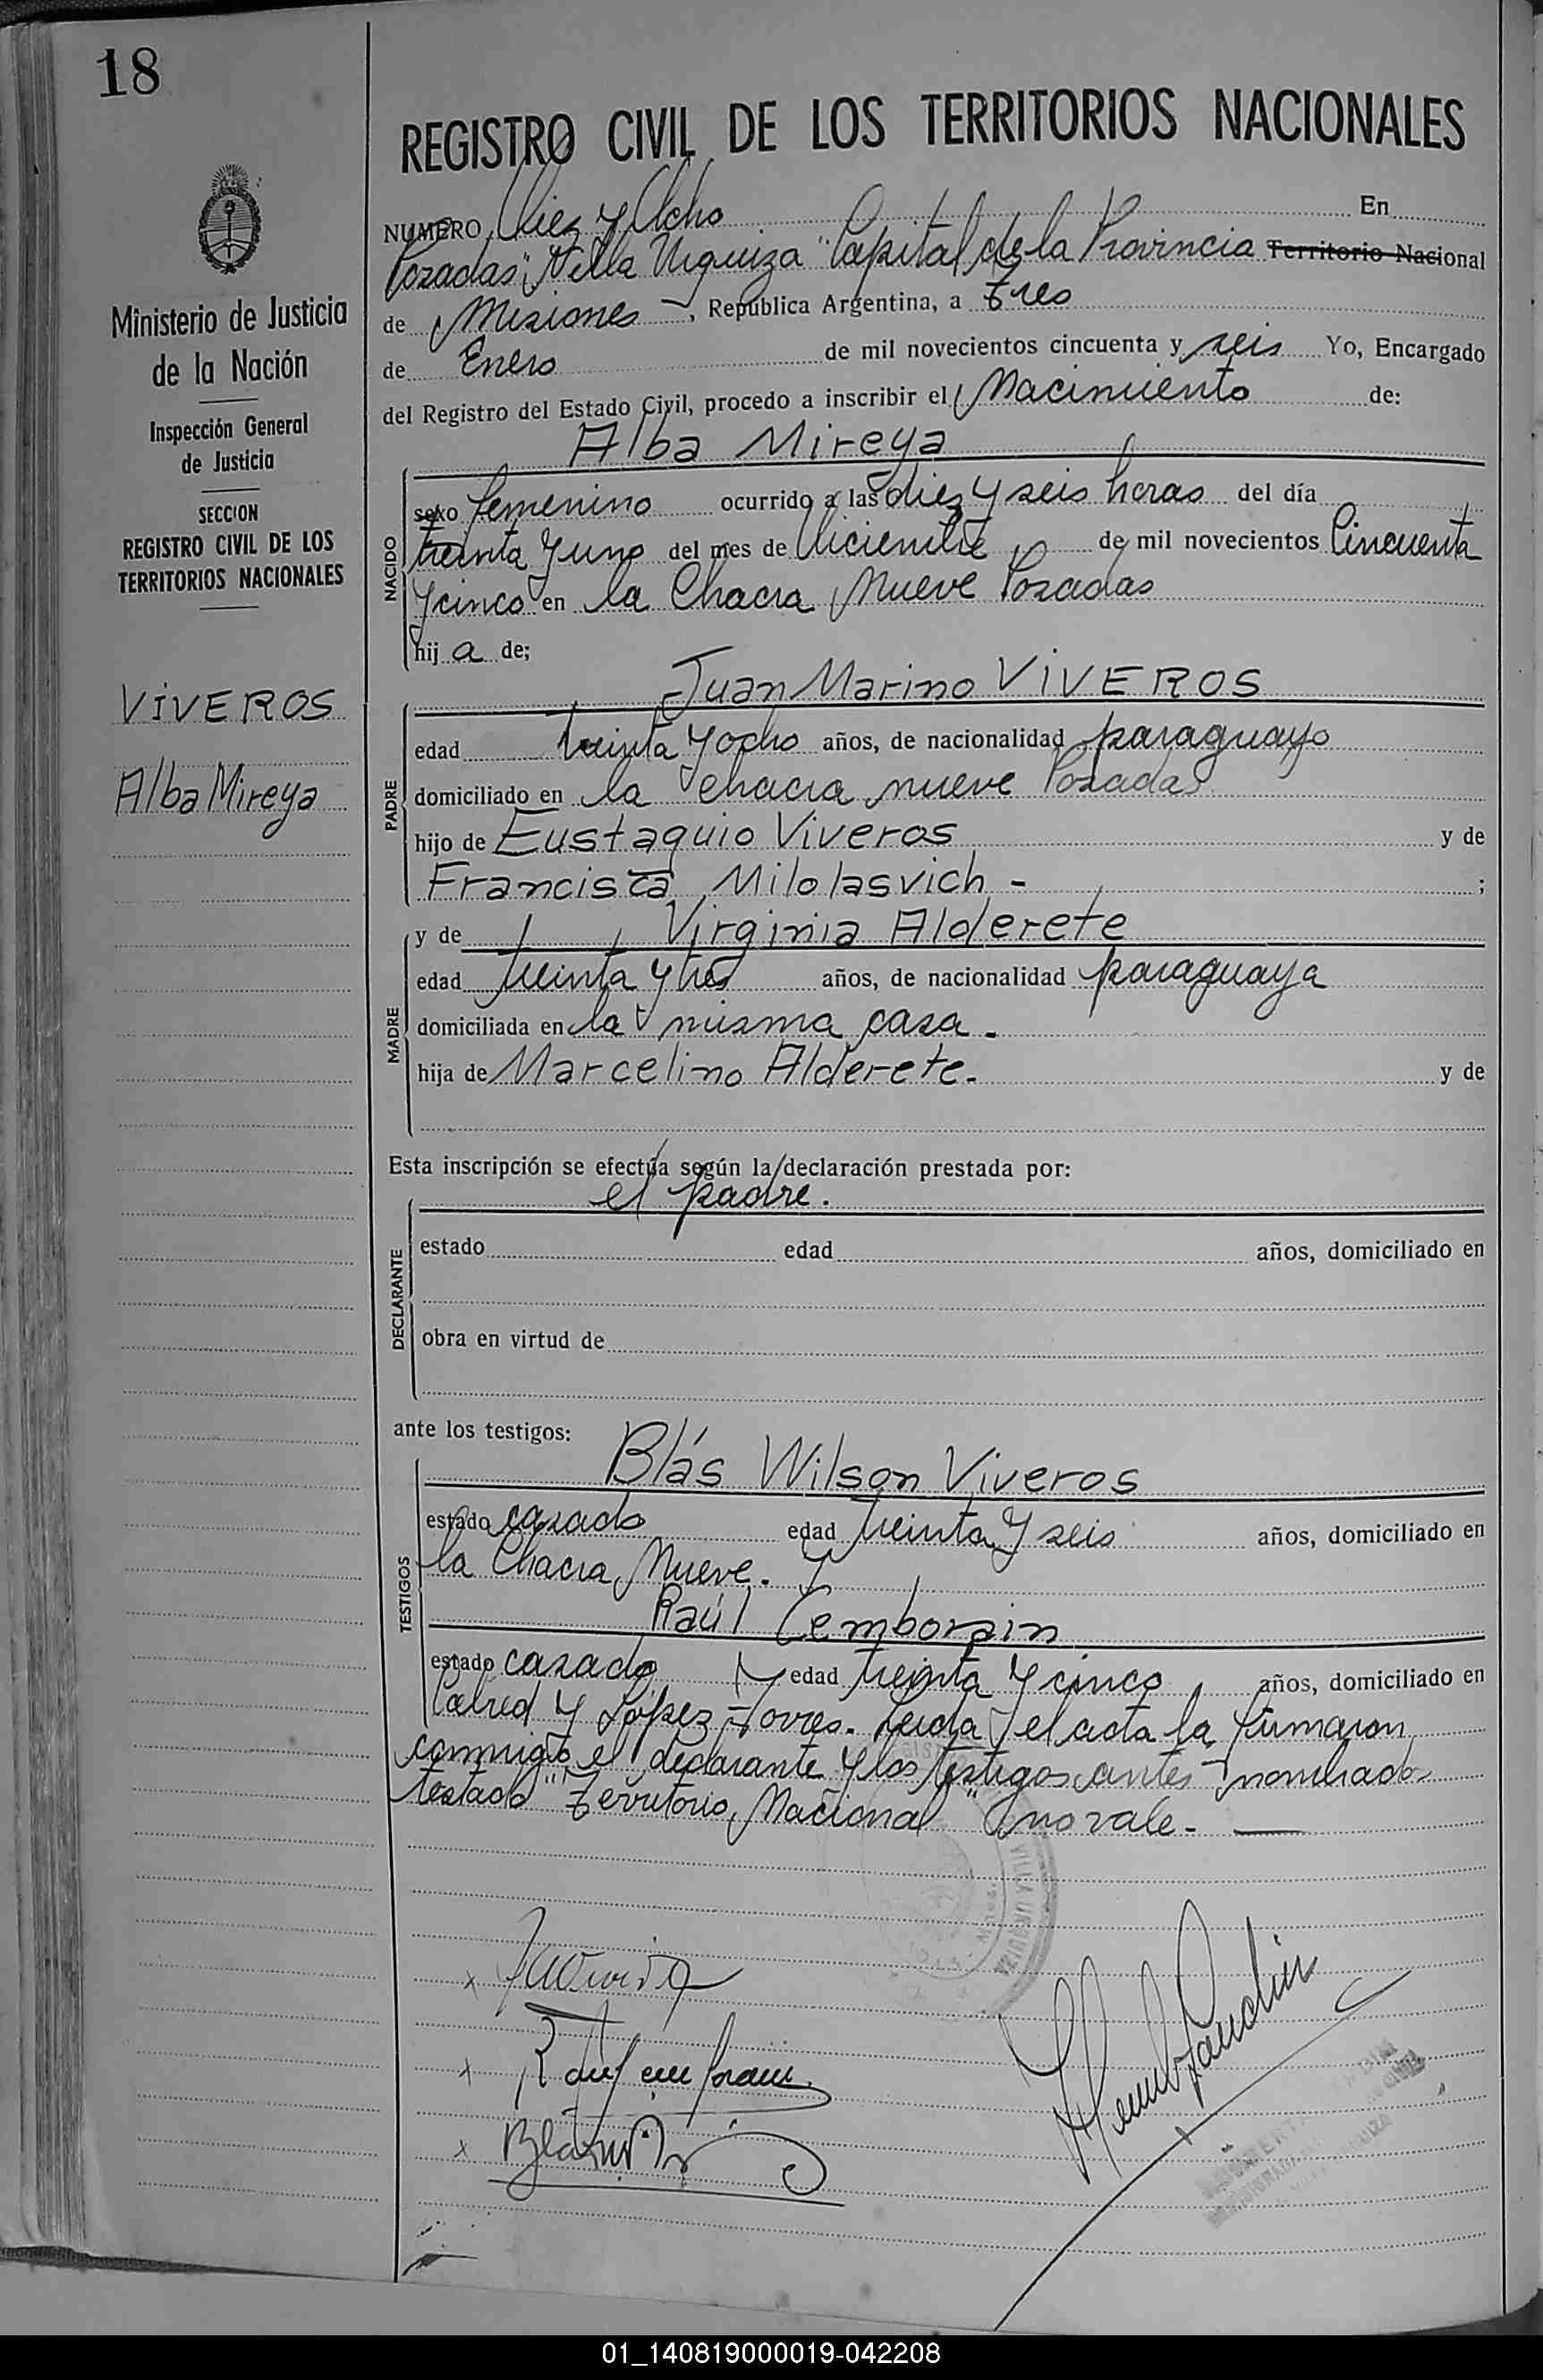 18
REGISTRO CIVIL DE LOS TERRITORIOS NACIONALES
Ministerio de Justicia
de la Nación
Inspección General
de Justicia
SECCION
REGISTRO CIVIL DE LOS
TERRITORIOS NACIONALES
VIVEROS
Alba Mireya
NUMERO Diez y Ocho En
Posadas "Villa Urquiza" Capital de la Provincia Territorio Nacional
de Misiones, República Argentina, a tres
de Enero de mil novecientos cincuenta y seis Yo, Encargado
del Registro del Estado Civil, procedo a inscribir el Nacimiento de:
Alba Mireya
NACIDO
sexo femenino ocurrido a las diez y seis horas del día
treinta y uno del mes de Diciembre de mil novecientos Cincuenta
y cinco en la Chacra Nueve Posadas
hij a de;
Juan Marino VIVEROS
PADRE
edad treinta y ocho años, de nacionalidad paraguayo
domiciliado en la chacra nueve Posadas
hijo de Eustaquio Viveros y de
Francisca Milolasvich - ;
y de Virginia Alderete
MADRE
edad treinta y tres años, de nacionalidad paraguaya
domiciliada en la misma casa.
hija de Marcelino Alderete. y de
Esta inscripción se efectúa según la declaración prestada por:
el padre.
DECLARANTE
estado edad años, domiciliado en
obra en virtud de
ante los testigos:
Blás Wilson Viveros
TESTIGOS
estado casado edad treinta y seis años, domiciliado en
la Chacra Nueve. Y
Raúl Cemborain
estado casado edad treinta y cinco años, domiciliado en
y López Torres. Leida el acta la firmaron
conmigo el declarante y los testigos antes nombrados
testado "Territorio Nacional" no vale.
VILLA URQUIZA
01_140819000019-042208